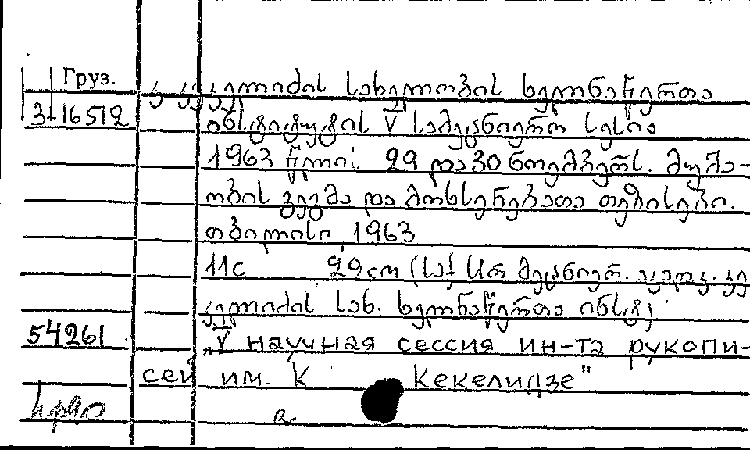 Груз.
კ. კეკელიძის სახელობის ხელნაწერთა
3-16512
ინსტიტუტის V სამეცნიერო სესია
1963 წლის 29 და 30 ნოემბერს. მუშა-
ობის გეგმა და მოხსენებათა თეზისები.
თბილისი 1963
11с 29см (საქ. სსრ მეცნიერ. აკად. კ. კე
კელიძის სახ. ხელნაწერთა ინსტ.)
54261
„V научная сессия ин-та рукопи-
сей им. К Кекелидзе"